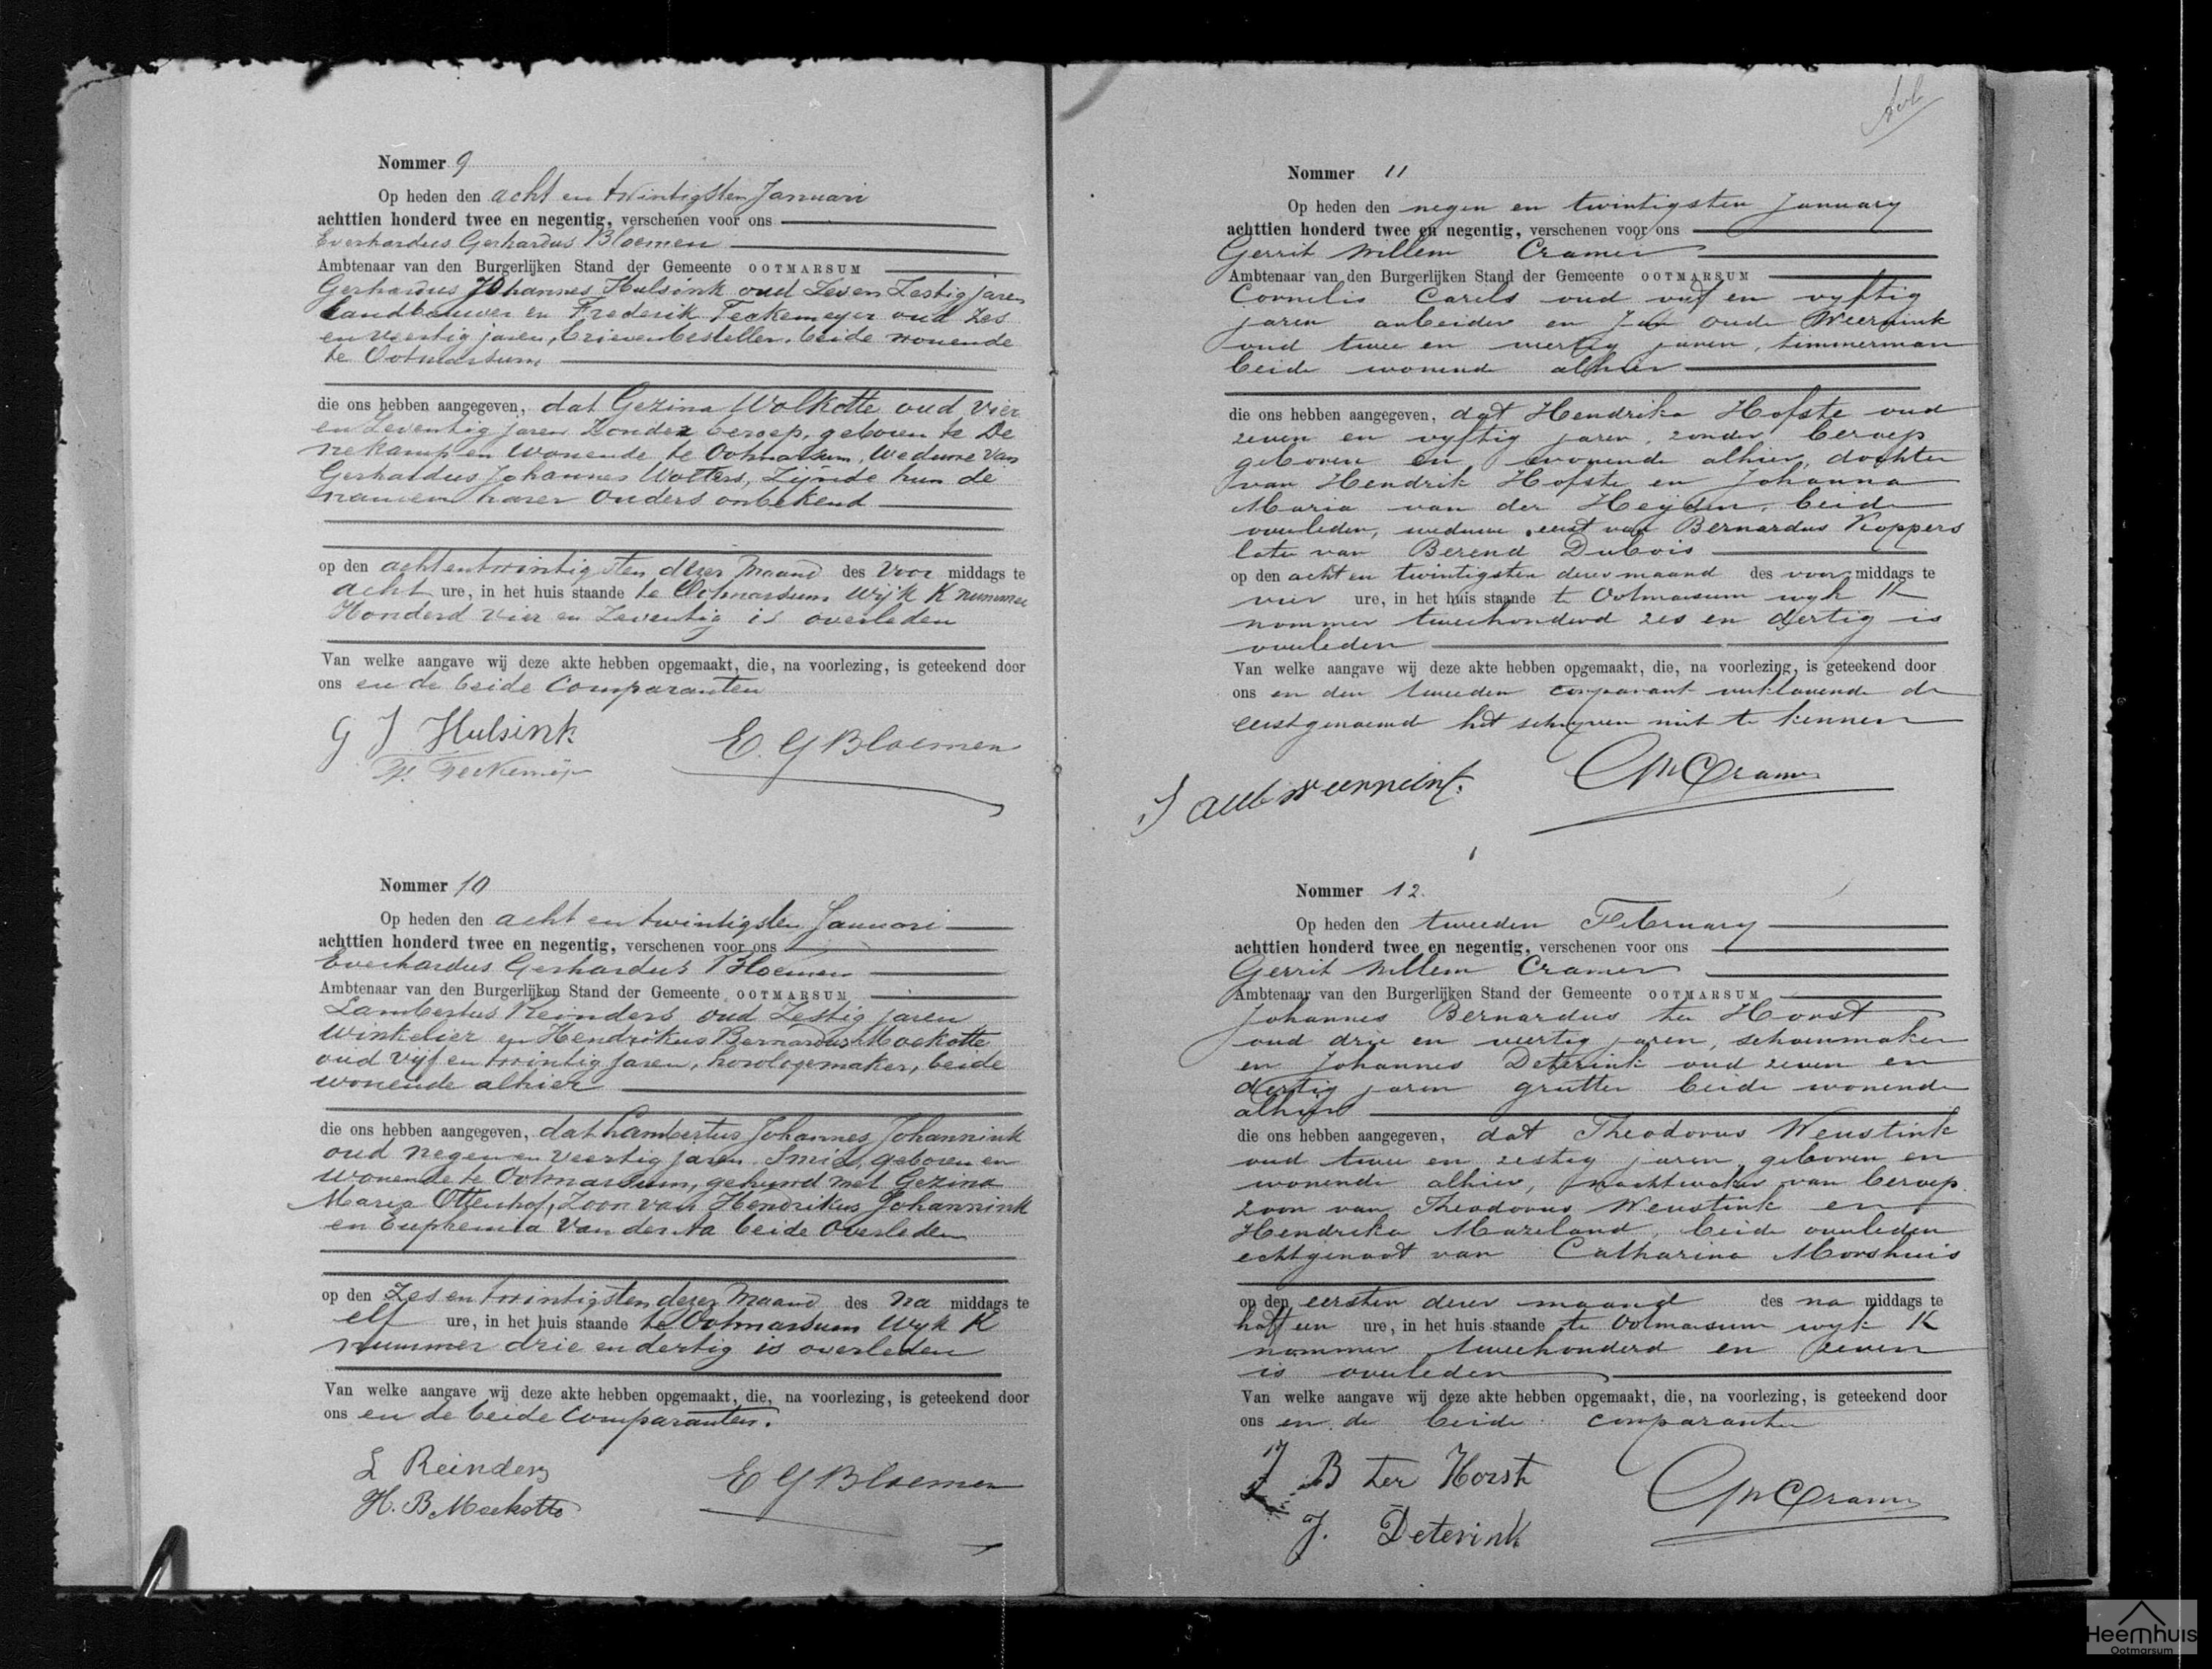 Nommer 9
Op heden den acht en twintigsten Januari
achttien honderd twee en negentig, verschenen voor ons
Everhardus Gerhardus Bloemen
Ambtenaar van den Burgerlijken Stand der Gemeente OOTMARSUM
Gerhardus Johannes Hulsink oud Zeven Zestig jaren
Landbouwer en Frederik Teckemeyer oud Zes
en veertig jaren, brievenbesteller, beide wonende
te Ootmarsum
die ons hebben aangegeven, dat Gezina Wolkotte oud Vier
en Zeventig jaren Zonder beroep, geboren te De
nekamp en Wonende te Ootmarsum, Weduwe van
Gerhardus Johannes Wolters, Zijnde hun de
namen harer Ouders onbekend
op den achtentwintigsten dezer Maand des Voor middags te
acht ure, in het huis staande te Ootmarsum Wijk K nummer
Honderd Vier en Zeventig is overleden
Van welke aangave wij deze akte hebben opgemaakt, die, na voorlezing, is geteekend door
ons en de beide Comparanten
G J Hulsink
E. G Bloemen
Nommer 10
Op heden den acht en twintigsten Januari
achttien honderd twee en negentig, verschenen voor ons
Everhardus Gerhardus Bloemen
Ambtenaar van den Burgerlijken Stand der Gemeente OOTMARSUM
Lambertus Reinders oud Zestig jaren
Winkelier en Hendrikus Bernardus Moekotte
oud Vijf en twintig Jaren, horologemaker, beide
wonende alhier
die ons hebben aangegeven, dat Lambertus Johannes Johannink
oud negen en Veertig jaren Smid, geboren en
wonende te Ootmarsum, gehuwd met Gezina
Maria Ottenhof, Zoon van Hendrikus Johannink
en Euphemia Van der Aa beide Overleden
op den Zes en twintigsten dezer Maand des na middags te
elf ure, in het huis staande te Ootmarsum Wyk K
nummer drie en dertig is overleden
Van welke aangave wij deze akte hebben opgemaakt, die, na voorlezing, is geteekend door
ons en de beide Comparanten.
L Reinders
E G Bloemen
H. B. Moekotte
Nommer 11
Op heden den negen en twintigsten January
achttien honderd twee en negentig, verschenen voor ons
Gerrit Willem Cramer
Ambtenaar van den Burgerlijken Stand der Gemeente OOTMARSUM
Cornelis Carels oud vijf en vyftig
jaren arbeider en Jan oude Weernink
oud twee en veertig jaren, timmerman
beide wonende alhier
die ons hebben aangegeven, dat Hendrika Hofste oud
zeven en vyftig jaren, zonder beroep
geboren en wonende alhier, dochter
van Hendrik Hofste en Johanna
Maria van der Heyden, beide
overleden, weduwe eerst van Bernardus Koppers
later van Berend Dubois
op den acht en twintigsten dezer maand des voor middags te
vier ure, in het huis staande te Ootmarsum wyk K
nommer tweehonderd zes en dertig is
overleden
Van welke aangave wij deze akte hebben opgemaakt, die, na voorlezing, is geteekend door
ons en den tweeden comparant verklarende de
eerstgenoemd het schryven niet te kennen
GW Cramer
Nommer 12.
Op heden den tweeden February
achttien honderd twee en negentig, verschenen voor ons
Gerrit Willem Cramer
Ambtenaar van den Burgerlijken Stand der Gemeente OOTMARSUM
Johannes Bernardus ter Horst
oud drie en veertig jaren, schoenmaker
en Johannes Deterink oud zeven en
dertig jaren grutter beide wonende
alhier
die ons hebben aangegeven, dat Theodorus Weustink
oud twee en zestig jaren, geboren en
wonende alhier, nachtwaker van beroep
zoon van Theodorus Weustink en
Hendrika Mazeland, beide overleden
echtgenoot van Catharina Morshuis
op den eersten dezer maand des na middags te
half een ure, in het huis staande te Ootmarsum wyk K
nommer tweehonderd en zeven
is overleden
Van welke aangave wij deze akte hebben opgemaakt, die, na voorlezing, is geteekend door
ons en de beide comparanten
J B ter Horst
GW Cramer
J. Deterink
Heemhuis
Ootmarsum